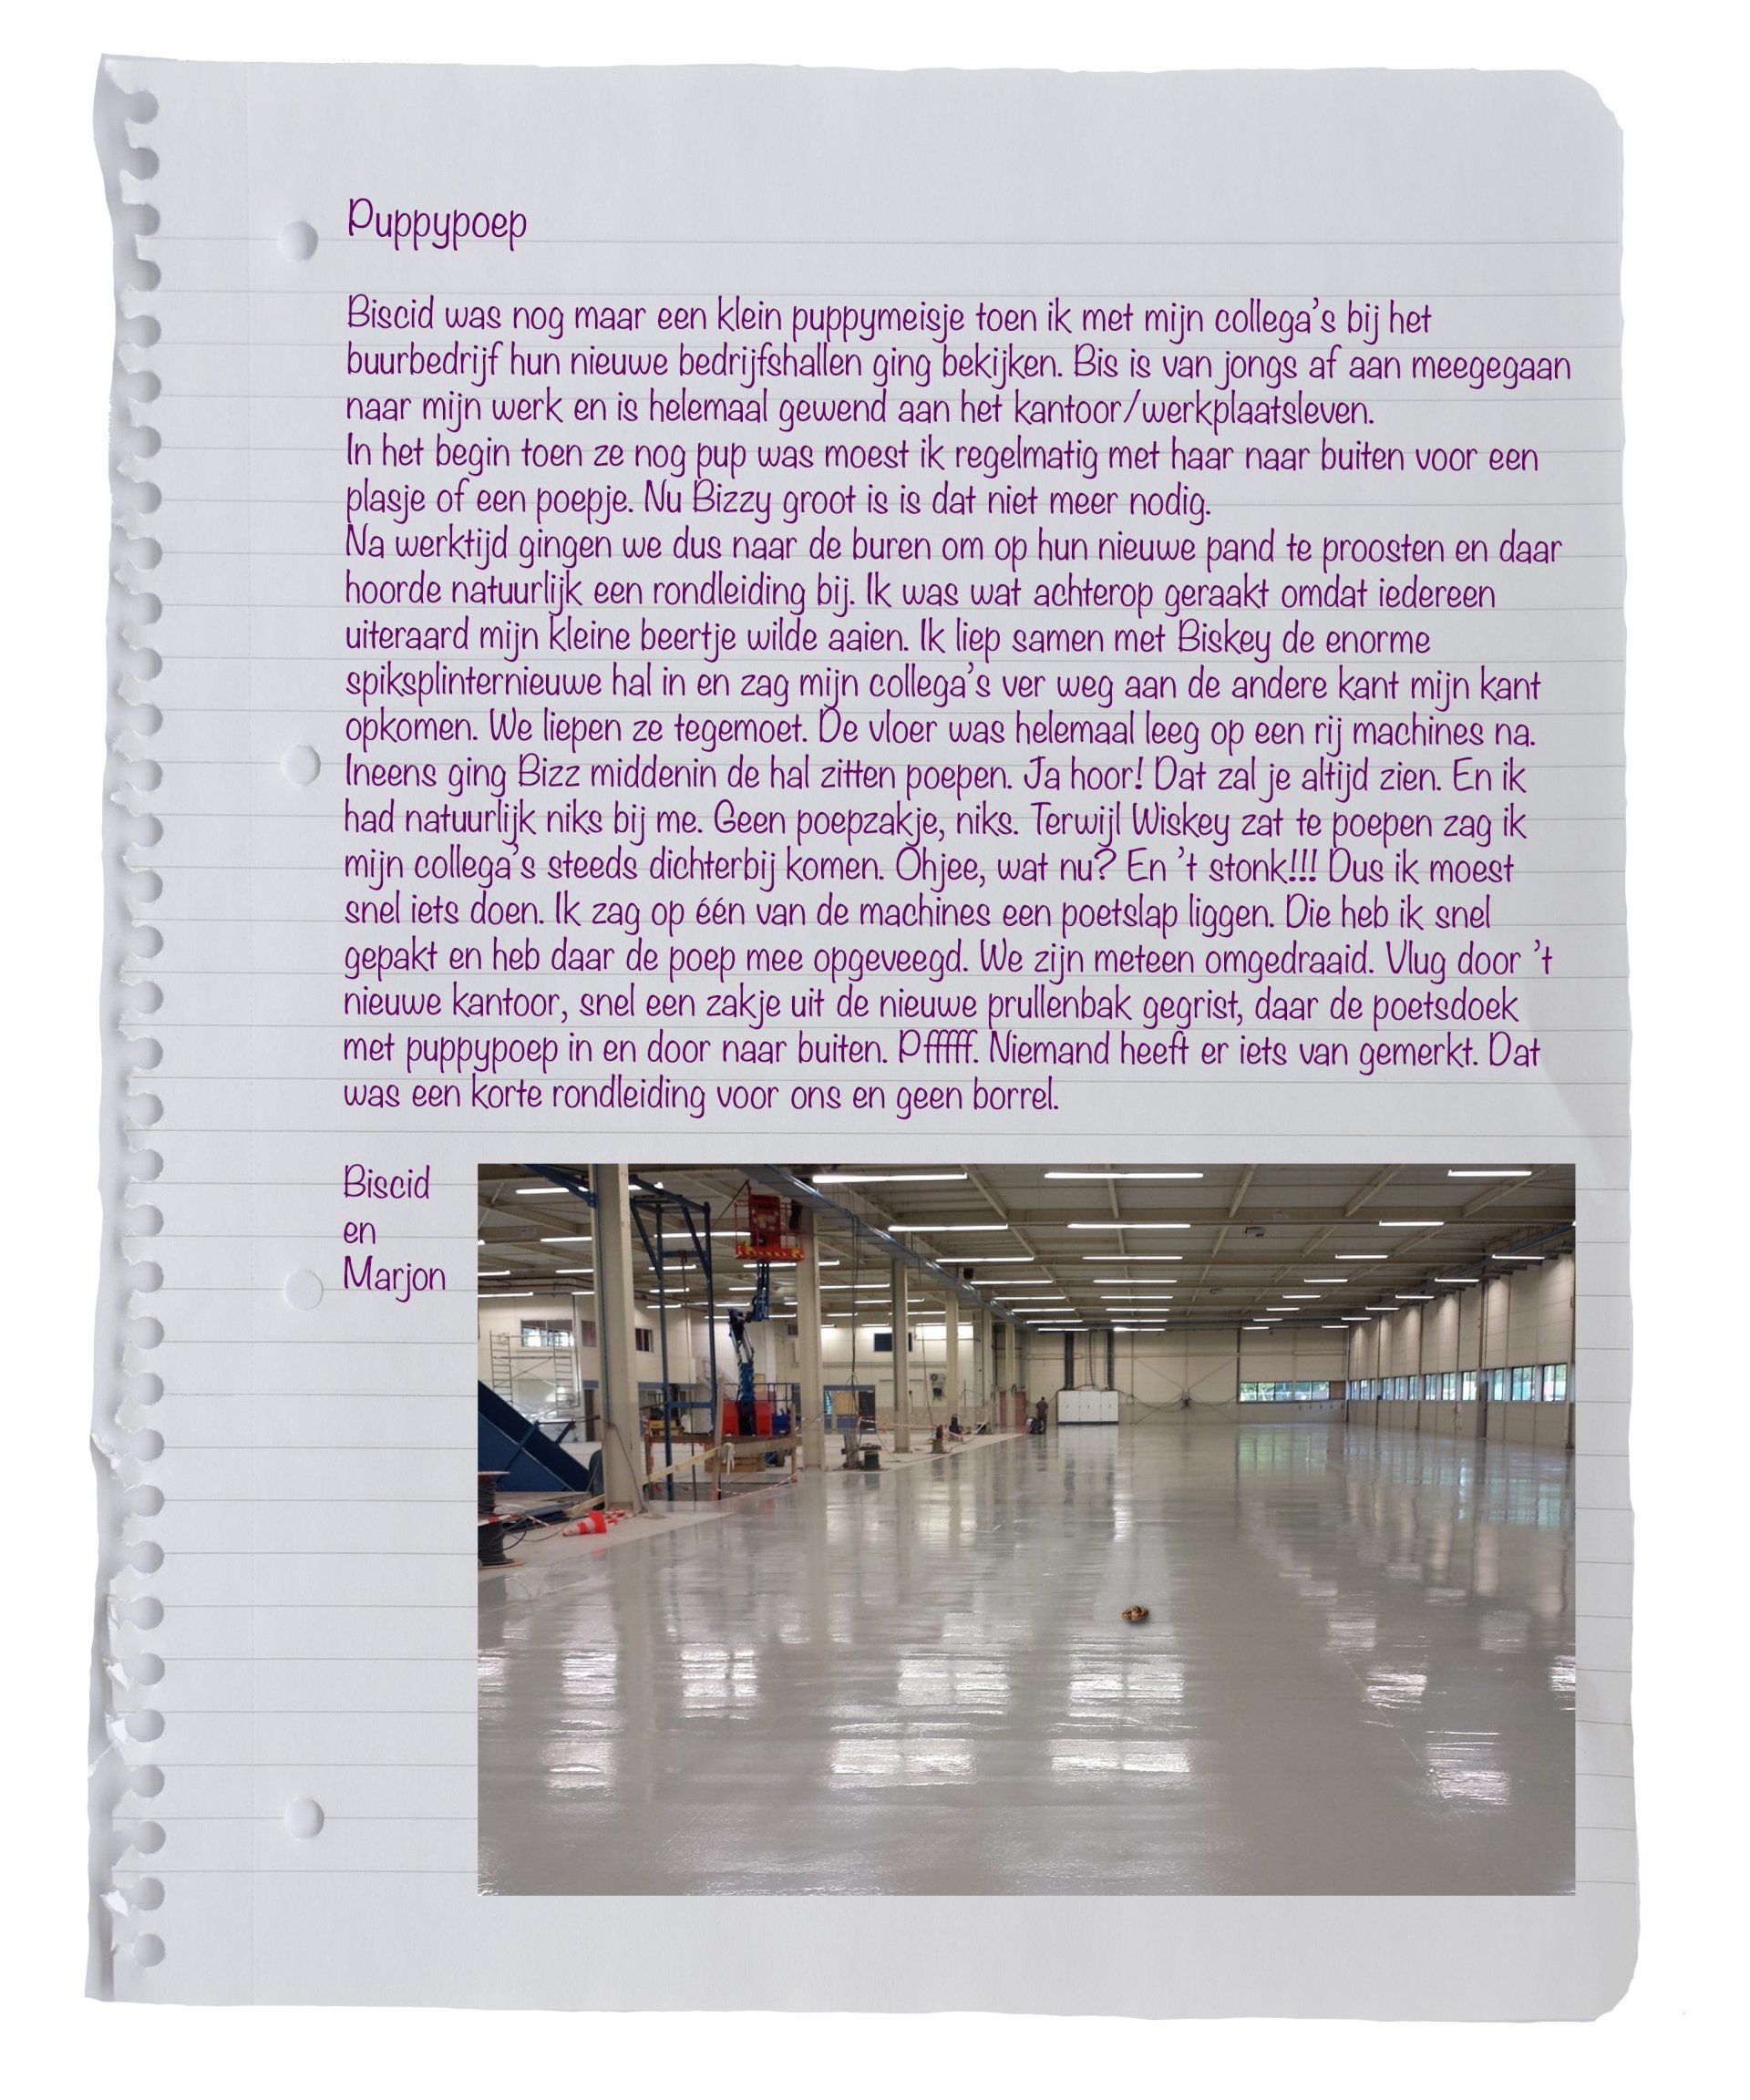 Puppypoep
Biscid was nog maar een klein puppymeisje toen ik met mijn collega's bij het
buurbedrijf hun nieuwe bedrijfshallen ging bekijken. Bis is van jongs af aan meegegaan
naar mijn werk en is helemaal gewend aan het kantoor/werkplaatsleven.
In het begin toen ze nog pup was moest ik regelmatig met haar naar buiten voor een
plasje of een poepje. Nu Bizzy groot is is dat niet meer nodig.
Na werktijd gingen we dus naar de buren om op hun nieuwe pand te proosten en daar
hoorde natuurlijk een rondleiding bij. Ik was wat achterop geraakt omdat iedereen
uiteraard mijn kleine beertje wilde aaien. Ik liep samen met Biskey de enorme
spiksplinternieuwe hal in en zag mijn collega's ver weg aan de andere kant mijn kant
opkomen. We liepen ze tegemoet. De vloer was helemaal leeg op een rij machines na.
Ineens ging Bizz middenin de hal zitten poepen. Ja hoor! Dat zal je altijd zien. En ik
had natuurlijk niks bij me. Geen poepzakje, niks. Terwijl Wiskey zat te poepen zag ik
mijn collega's steeds dichterbij komen. Ohjee, wat nu? En 't stonk!!! Dus ik moest
snel iets doen. Ik zag op één van de machines een poetslap liggen. Die heb ik snel
gepakt en heb daar de poep mee opgeveegd. We zijn meteen omgedraaid. Vlug door 't
nieuwe kantoor, snel een zakje uit de nieuwe prullenbak gegrist, daar de poetsdoek
met puppypoep in en door naar buiten. Pfffff. Niemand heeft er iets van gemerkt. Dat
was een korte rondleiding voor ons en geen borrel.
Biscid
en
Marjon